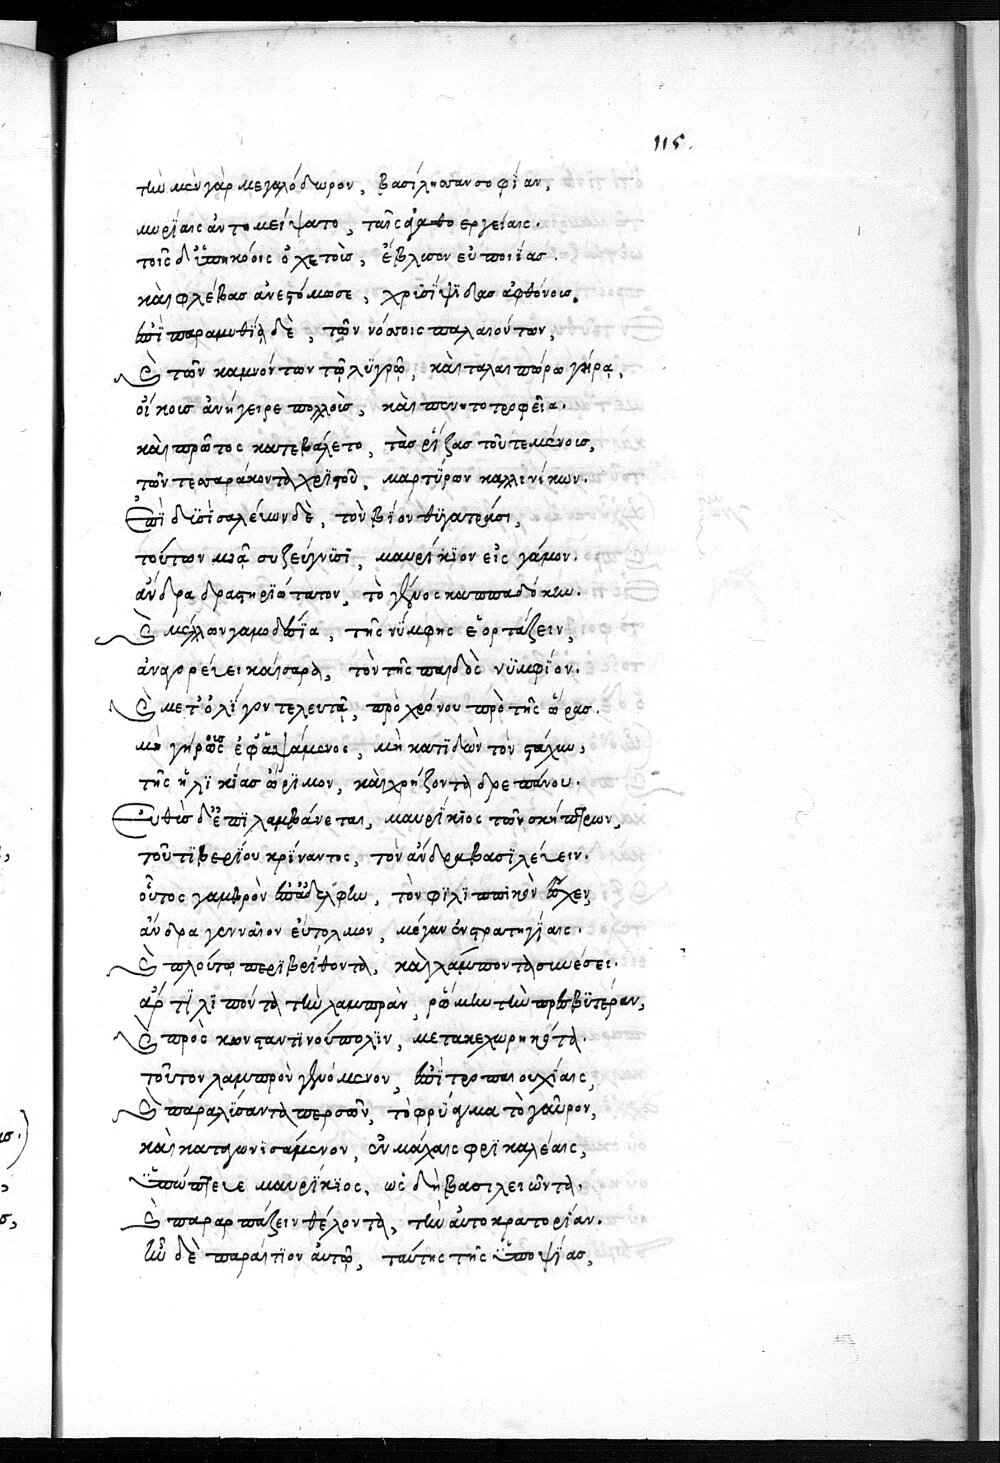 115.
τὴν μὲν γὰρ μεγαλόδωρον, βασίλισσαν σοφίαν,
μυρίαις ἀντημείψατο, ταῖς ἀγαθοεργείαις.
τοῖς δ' ὑπηκόοις ὀχετοὺς, ἔβλυσεν εὐποιΐας.
καὶ φλέβας ἀνεστόμωσε, χρυσίτιδας ἀφθόνους.
ἐπὶ παραμυθίᾳ δὲ, τῶν νόσοις παλαιόντων,
καὶ τῶν καμνόντων τῷ λυγρῷ, καὶ ταλαιπώρῳ γήρᾳ,
οἴκους ἀνήγειρε πολλοὺς, καὶ πτωχοτροφεῖα.
καὶ πρῶτος κατεβάλετο, τὰς ῥίζας τοῦ τεμένους,
τῶν τεσσαράκοντα χριστοῦ, μαρτύρων καλλινίκων.
Ἐπὶ δυσὶ σαλεύων δὲ, τὸν βίον θυγατράσι,
τούτων μιᾷ συζεύγνυσι, μαυρίκιον εἰς γάμον.
ἄνδρα δραστηριώτατον, τὸ γένος καππαδόκην.
καὶ μέλλων γαμοδαίσια, τῆς νύμφης ἑορτάζειν,
ἀναγορεύει καίσαρα, τὸν τῆς παιδὸς νυμφίον.
καὶ μετ' ὀλίγον τελευτᾷ, πρὸ χρόνου πρὸ τῆς ὥρας.
μὴ γήρως ἐφαψάμενος, μὴ κατιδὼν τὸν στάχυν,
τῆς ἡλικίας ὥριμον, καὶ χρήζοντα δρεπάνου.
Εὐθὺς δ' ἐπιλαμβάνεται, μαυρίκιος τῶν σκήπτρων,
τοῦ τιβερίου κρίναντος, τὸν ἄνδρα βασιλεύειν.
οὗτος γαμβρὸν ἐπ' ἀδελφῇ, τὸν φιλιππικὸν ἔχεν,
ἄνδρα γενναῖον εὔτολμον, μέγαν ἐν στρατηγίαις.
καὶ πλούτῳ περιβρίθοντα, καὶ λάμποντα συνέσει.
ἄρτι λιπόντα τὴν λαμπρὰν, ῥώμην τὴν πρεσβυτέραν,
καὶ πρὸς κωνσταντινούπολιν, μετακεχωρηκότα.
τοῦτον λαμπρὸν γενόμενον, ἐπὶ τροπαιουχίαις,
καὶ παραλύσαντα περσῶν, τὸ φρύαγμα τὸ γαῦρον,
καὶ καταγωνισάμενον, ἐν μάχαις φρικαλέαις,
ὑπώπτευε μαυρίκιος, ὡς δὴ βασιλειῶντα.
καὶ παραρπάζειν θέλοντα, τὴν αὐτοκρατορίαν.
ἦν δὲ παραίτιον αὐτῷ, ταύτης τῆς ὑποψίας,